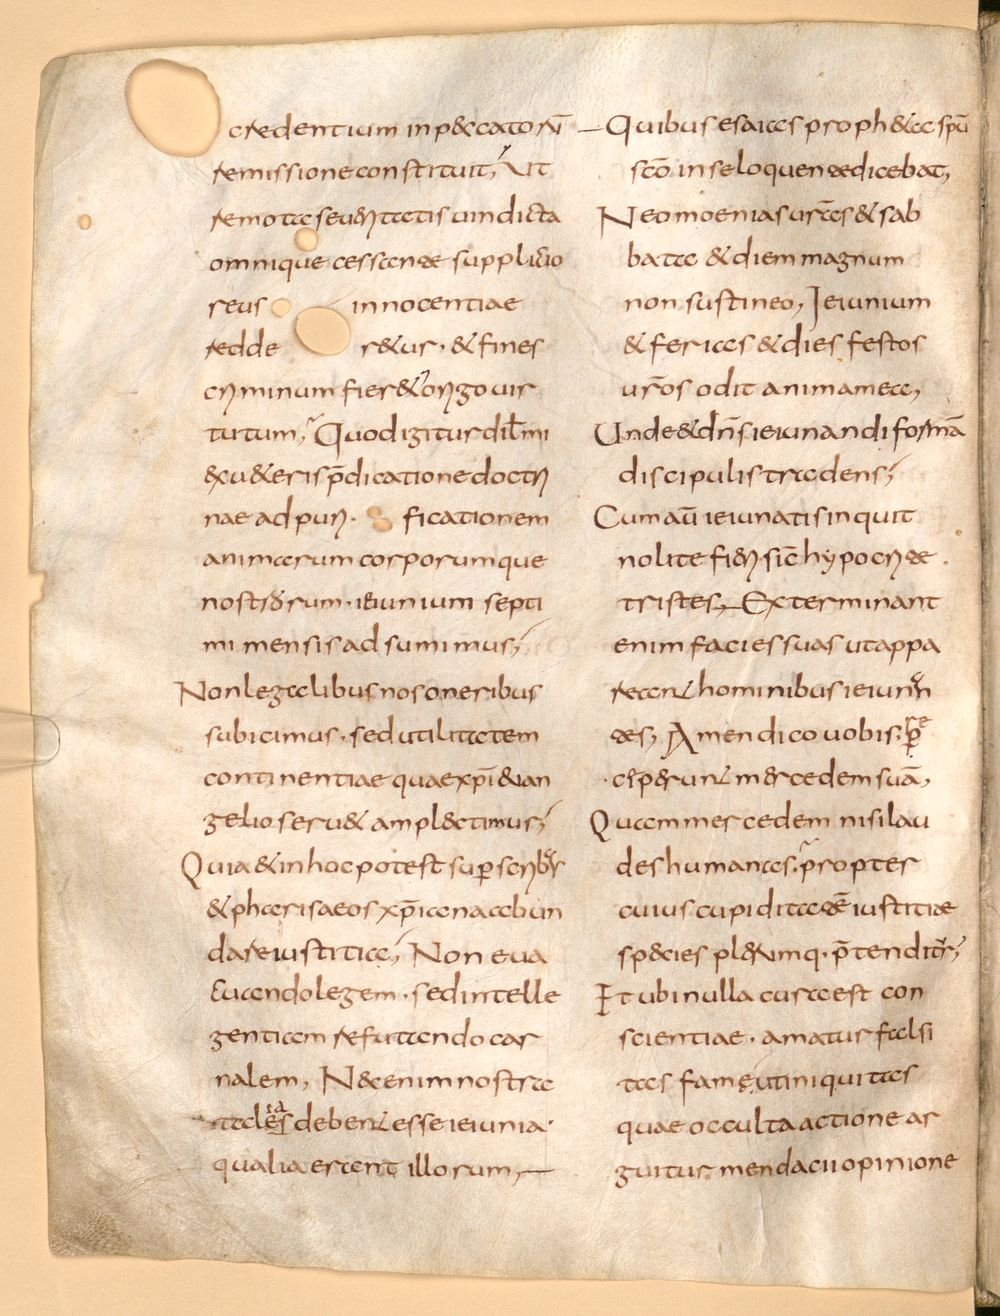 credentium in peccatorū
remissione constituit; Ut
remota seueritatis uindicta
omnique cessante supplicio
reus innocentiae
redderetur · & fines
criminum fieret origo uir
tutum; Quod igitur dil̅mi
ex ueteris p̄dicatione doctri
nae ad puri ficationem
animarum corporumque
nostrorum · ieiunium septi
mi mensis adsumimus;
Non legalibus nos oneribus
subicimus · sed utilitatem
continentiae quae xp̄i euan
gelio seruet amplectimur;
Quia & in hoc potest super scribas
& pharisaeos xp̄iana abun
dare iustitia; Non eua
cuando legem · sed intelle
gentiam refutando car
nalem, Nec enim nostra
talia debent esse ieiunia ·
qualia erant illorum,
Quibus esaias propheta spū
sc̄o in se loquente dicebat,
Neomoenias uestras & sab
bata & diem magnum
non sustineo, Ieiunium
& ferias & dies festos
ur̄os odit anima mea,
Unde & dn̄s ieiunandi formā
discipulis tradens;
Cum au̅ ieiunatis inquit
nolite fieri sic̄ hypocritae
tristes, Exterminant
enim facies suas ut appa
reant hominibus ieiunan
tes, Amen dico uobis · re
ceperunt mercedem suā,
Quam mercedem nisi lau
des humanas · propter
cuius cupiditatē iustitiae
species plerumq · p̄tenditur;
Et ubi nulla cura est con
scientiae · amatur falsi
tas famae ut iniquitas
quae occulta actione ar
guitur mendacii opinione